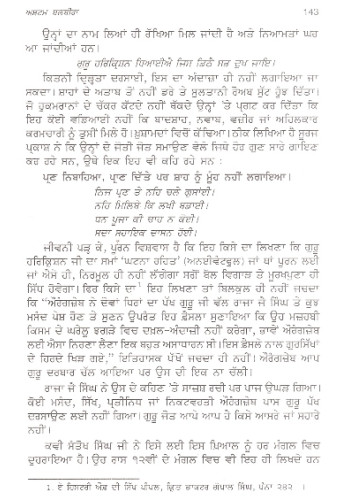 ਅਸ਼ਟਮ ਬਲਬੀਰਾ 143
ਉਨ੍ਹਾਂ ਦਾ ਨਾਮ ਲਿਆਂ ਹੀ ਰੱਖਿਆ ਮਿਲ ਜਾਂਦੀ ਹੈ ਅਤੇ ਨਿਆਮਤਾਂ ਘਰ
ਆ ਜਾਂਦੀਆਂ ਹਨ।
ਗੁਰੂ ਹਰਿਕ੍ਰਿਸ਼ਨ ਧਿਆਈਐ ਜਿਸ ਡਿਠੈ ਸਭ ਦੁਖ ਜਾਇ।
ਕਿਤਨੀ ਦ੍ਰਿੜ੍ਹਤਾ ਦਰਸਾਈ, ਇਸ ਦਾ ਅੰਦਾਜ਼ਾ ਹੀ ਨਹੀਂ ਲਗਾਇਆ ਜਾ
ਸਕਦਾ। ਸ਼ਾਹਾਂ ਦੇ ਅਤਾਬ ਤੋਂ ਨਹੀਂ ਡਰੇ ਤੇ ਸੁਲਤਾਨੀ ਰੋਅਬ ਸੁੱਟ ਹੁੱਝ ਦਿੱਤਾ।
ਜੋ ਹੁਕਮਰਾਨਾਂ ਦੇ ਚੱਕਰ ਕੱਟਦੇ ਨਹੀਂ ਥੱਕਦੇ ਉਨ੍ਹਾਂ 'ਤੇ ਪ੍ਰਗਟ ਕਰ ਦਿੱਤਾ ਕਿ
ਇਹ ਕੋਈ ਵਡਿਆਈ ਨਹੀਂ ਕਿ ਬਾਦਸ਼ਾਹ, ਨਵਾਬ, ਵਜ਼ੀਰ ਜਾਂ ਅਹਿਲਕਾਰ
ਕਰਮਚਾਰੀ ਨੂੰ ਤੁਸੀਂ ਮਿਲੇ ਹੋ। ਖ਼ੁਸ਼ਾਮਦਾਂ ਵਿਚੋਂ ਕੱਢਿਆ। ਠੀਕ ਲਿਖਿਆ ਹੈ ਸੂਰਜ
ਪ੍ਰਕਾਸ਼ ਨੇ ਕਿ ਉਨ੍ਹਾਂ ਦੇ ਜੋਤੀ ਜੋਤ ਸਮਾਉਣ ਵੇਲੇ ਜਿਥੇ ਹੋਰ ਗੁਣ ਸਾਰੇ ਗਾਇਣ
ਕਰ ਰਹੇ ਸਨ, ਉਥੇ ਇਕ ਇਹ ਵੀ ਕਹਿ ਰਹੇ ਸਨ :
ਪ੍ਰਣ ਨਿਬਾਹਿਆ, ਪ੍ਰਾਣ ਦਿੱਤੇ ਪਰ ਸ਼ਾਹ ਨੂੰ ਮੂੰਹ ਨਹੀਂ ਲਗਾਇਆ।
ਨਿਜ ਪ੍ਰਣ ਤੇ ਨਹਿ ਚਲੇ ਗੁਸਾਂਈ।
ਨਹਿ ਮਿਲਿਬੇ ਕਿ ਲਖੀ ਬਡਾਈ।
ਧਨ ਪੂਜਾ ਕੀ ਚਾਹ ਨ ਕੋਈ।
ਸਦਾ ਸਹਾਇਕ ਦਾਸਨ ਹੋਈ।
ਜੀਵਨੀ ਪੜ੍ਹ ਕੇ, ਪੂਰਨ ਵਿਸ਼ਵਾਸ ਹੈ ਕਿ ਇਹ ਕਿਸੇ ਦਾ ਲਿਖਣਾ ਕਿ ਗੁਰੂ
ਹਰਿਕ੍ਰਿਸ਼ਨ ਜੀ ਦਾ ਸਮਾਂ 'ਘਟਨਾ ਰਹਿਤ' (ਅਨਈਵੈਂਟਫੁਲ) ਜਾਂ ਥਾਂ ਪੂਰਨ ਲਈ
ਜਾਂ ਐਸੇ ਹੀ, ਨਿਰਮੂਲ ਹੀ ਨਹੀਂ ਲੱਗੇਗਾ ਸਗੋਂ ਖੇਲ ਵਿਗਾੜ ਤੇ ਮੂਰਖਪੁਣਾ ਹੀ
ਸਿੱਧ ਹੋਵੇਗਾ। ਫਿਰ ਕਿਸੇ ਦਾ¹ ਇਹ ਲਿਖਣਾ ਤਾਂ ਬਿਲਕੁਲ ਹੀ ਨਹੀਂ ਜਚਦਾ
ਕਿ "ਔਰੰਗਜ਼ੇਬ ਨੇ ਦੋਵਾਂ ਧਿਰਾਂ ਦਾ ਪੱਖ ਗੁਰੂ ਜੀ ਵੱਲ ਰਾਜਾ ਜੈ ਸਿੰਘ ਤੇ ਕੁਝ
ਮਸੰਦ ਪੇਸ਼ ਹੋਣ ਤੇ ਸੁਣਨ ਉਪਰੰਤ ਇਹ ਫ਼ੈਸਲਾ ਸੁਣਾਇਆ ਕਿ ਉਹ ਮਜ਼ਹਬੀ
ਕਿਸਮ ਦੇ ਘਰੇਲੂ ਝਗੜੇ ਵਿਚ ਦਖ਼ਲ-ਅੰਦਾਜ਼ੀ ਨਹੀਂ ਕਰੇਗਾ, ਭਾਵੇਂ ਔਰੰਗਜ਼ੇਬ
ਲਈ ਐਸਾ ਨਿਰਣਾ ਲੈਣਾ ਇਕ ਬਹੁਤ ਅਸਾਧਾਰਨ ਸੀ। ਇਸ ਫ਼ੈਸਲੇ ਨਾਲ ਗੁਰਸਿੱਖਾਂ
ਦੇ ਹਿਰਦੇ ਖਿੜ ਗਏ," ਇਤਿਹਾਸਕ ਪੱਖੋਂ ਜਚਦਾ ਹੀ ਨਹੀਂ। ਔਰੰਗਜ਼ੇਬ ਆਪ
ਗੁਰੂ ਦਰਬਾਰ ਚੱਲ ਆਇਆ ਪਰ ਉਸ ਦੀ ਇਕ ਨਾ ਚੱਲੀ।
ਰਾਜਾ ਜੈ ਸਿੰਘ ਨੇ ਉਸ ਦੇ ਕਹਿਣ 'ਤੇ ਸਾਜ਼ਸ਼ ਰਚੀ ਪਰ ਪਾਜ ਉਘੜ ਗਿਆ।
ਕੋਈ ਮਸੰਦ, ਸਿੱਖ, ਪ੍ਰਤੀਨਿਧ ਜਾਂ ਨਿਕਟਵਰਤੀ ਔਰੰਗਜ਼ੇਬ ਪਾਸ ਗੁਰੂ ਪੱਖ
ਦਰਸਾਉਣ ਲਈ ਨਹੀਂ ਗਿਆ। ਗੁਰੂ ਜੋਤ ਆਪੇ ਆਪ ਹੈ ਕਿਸੇ ਆਸਰੇ ਜਾਂ ਸਹਾਰੇ
ਨਹੀਂ।
ਕਵੀ ਸੰਤੋਖ ਸਿੰਘ ਜੀ ਨੇ ਇਸੇ ਲਈ ਇਸ ਖਿਆਲ ਨੂੰ ਹਰ ਮੰਗਲ ਵਿਚ
ਦੁਹਰਾਇਆ ਹੈ। ਉਹ ਰਾਸ ੧੨ਵੀਂ ਦੇ ਮੰਗਲ ਵਿਚ ਵੀ ਇਹ ਹੀ ਲਿਖਦੇ ਹਨ
1. ਏ ਹਿਸਟਰੀ ਔਫ਼ ਦੀ ਸਿੱਖ ਪੀਪਲ, ਕ੍ਰਿਤ ਡਾਕਟਰ ਗੋਪਾਲ ਸਿੰਘ, ਪੰਨਾ ੨੪੨ ।